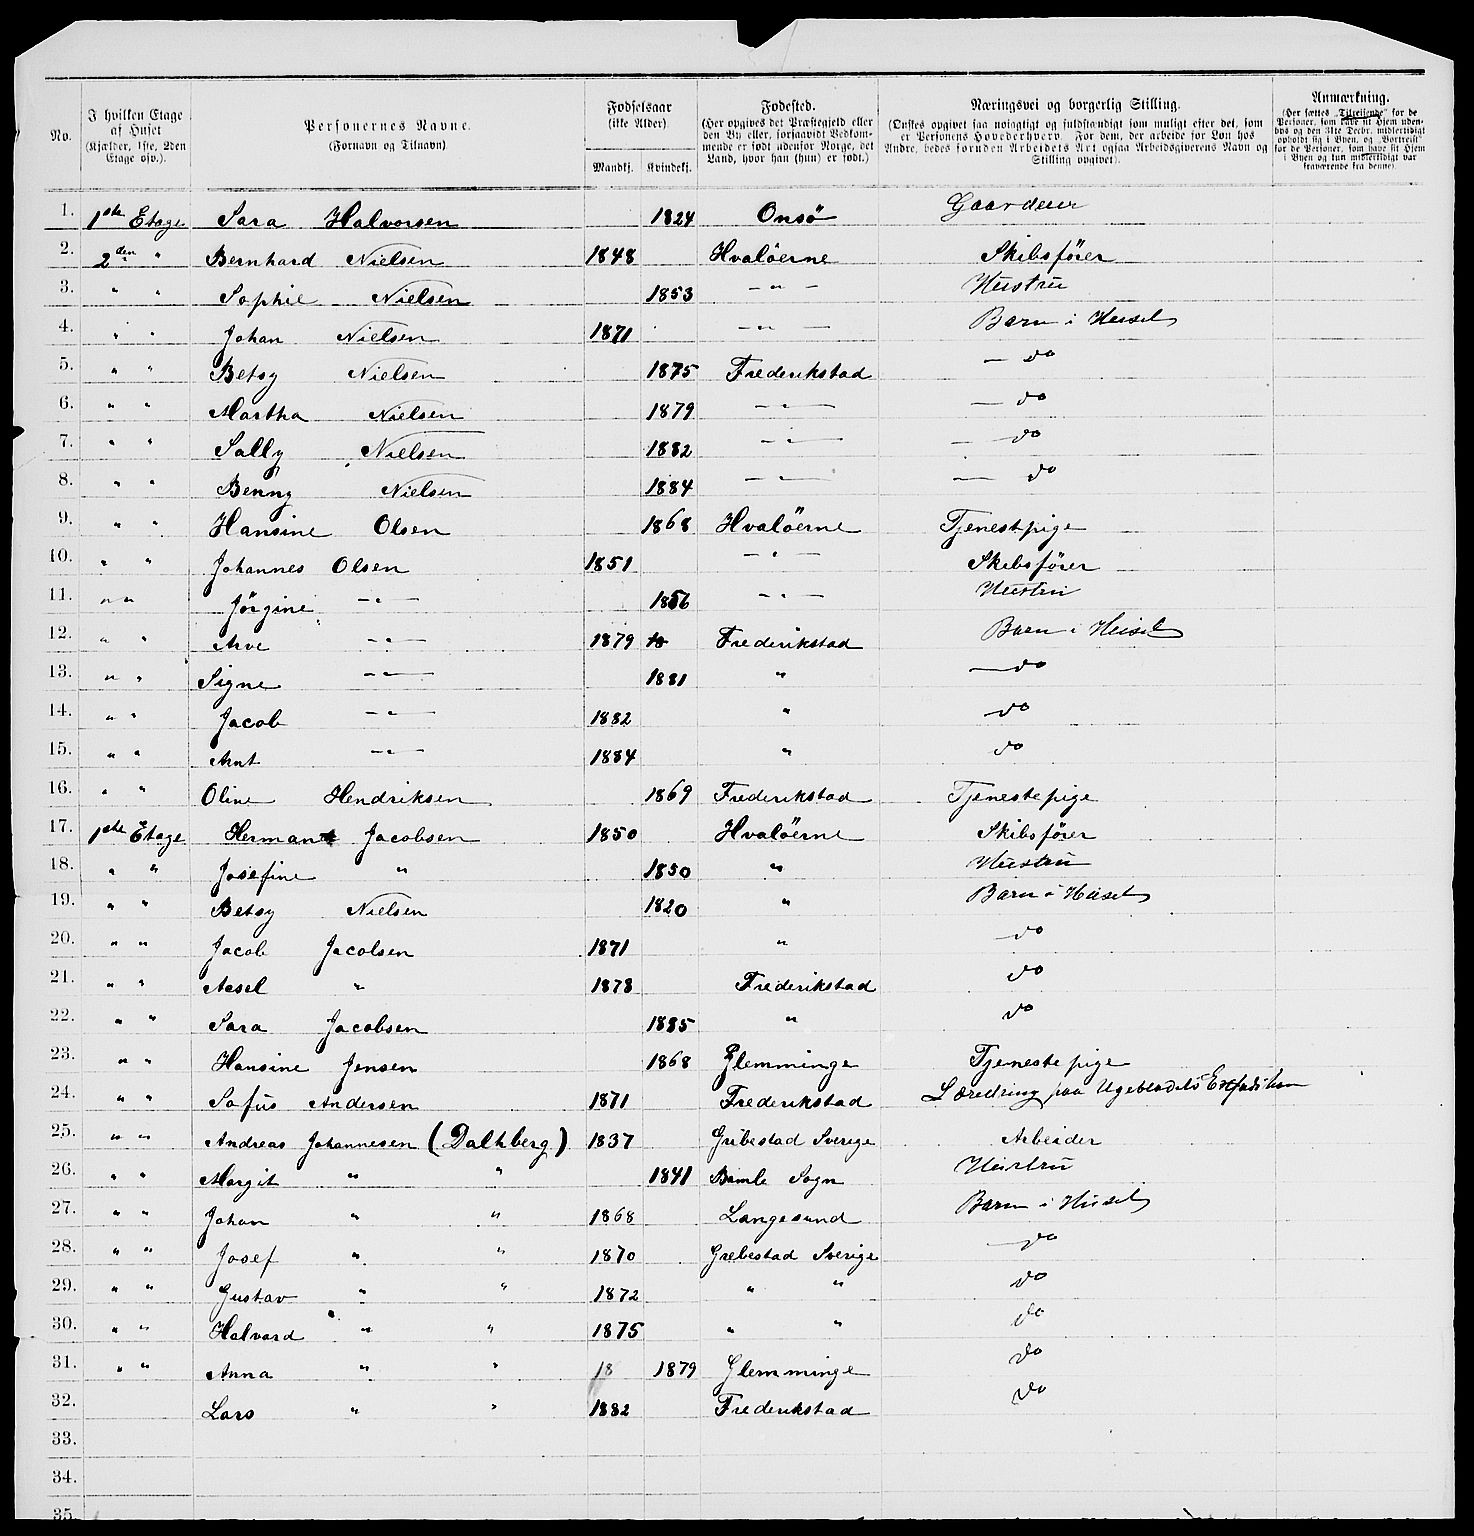 No. | I hvilken Etage af Huset (Kjælder, 1ste, 2den Etage osv.). | Personernes Navne. (Fornavn og Tilnavn) | Fødselsaar (ikke Alder) Mandkj. | Kvindekj. | Fødested. (Her opgives det Præstegjeld eller den By eller, forsaavidt Vedkommende er født udenfor Norge, det Land, hvor han (hun) er født.) | Næringsvei og borgerlig Stilling. (Ønskes opgivet saa nøiagtigt og fuldstændigt som muligt efter det, som er Personens Hovederhverv. For dem, der arbeide for Løn hos Andre, bedes foruden Arbeidets Art ogsaa Arbeidsgiverens Navn og Stilling opgivet). | Anmærkning. (Her sættes „Tilreisende" for de Personer, som have sit Hjem udenbys og den 31te Decbr. midlertidigt opholdt sig i Byen, og „Bortreist" for de Personer, som have sit Hjem i Byen og kun midlertidigt var fraværende fra denne).
1. 1ste Etage Sara Halvorsen 1824 Onsö Gaardeier
2. 2den " Bernhard Nielsen 1848 Hvalöerne Skibsfører
3. " " Sophie Nielsen 1853 — " — Hustru
4. " " Johan Nielsen 1871 — " — Barn i Huset
5. " " Betsy Nielsen 1875 Frederikstad — do
6. " " Martha Nielsen 1879 — " — — do
7. " " Sally Nielsen 1882 — " — — do
8. " " Benny Nielsen 1884 — " — — do
9. " " Hansine Olsen 1868 Hvalöerne Tjenestpige
10. " " Johannes Olsen 1851 — " — Skibsfører
11. " " Jörgine — " — 1856 — " — Hustru
12. " " Arve — " — 1879 18 Frederikstad Barn i Huset
13. " " Signe — " — 1881 " — do
14. " " Jacob — " — 1882 " — do
15. " " Arnt — " — 1884 " do
16. " " Oline Hendriksen 1869 Frederikstad Tjenestepige
17. 1ste Etage Herman Jacobsen 1850 Hvalöerne Skibsfører
18. " " Josefine " 1850 " Hustru
19. " " Betsy Nielsen 1820 " Barn i Huset
20. " " Jacob Jacobsen 1871 " — do
21. " " Aksel " 1878 Frederikstad do
22. " " Sara Jacobsen 1885 " do
23. " " Hansine Jensen 1868 Glemminge Tjenestepige
24. " " Sofus Andersen 1871 Frederikstad Læredring paa Ugebladets Expedition
25. " " Andreas Johannesen (Dalhberg) 1837 Gribestad Sverige Arbeider
26. " " Margit " " 1841 Bamle Sogn Hustru
27. " " Johan " " 1868 Langesund Barn i Huset
28. " " Josef " " 1870 Grebestad Sverige — do
29. " " Gustav " " 1872 " " do
30. " " Halvard " " 1875 " " do
31. " " Anna " " 18 1879 Glemminge do
32. Lars " " 1882 Frederikstad do
33.
34.
35.